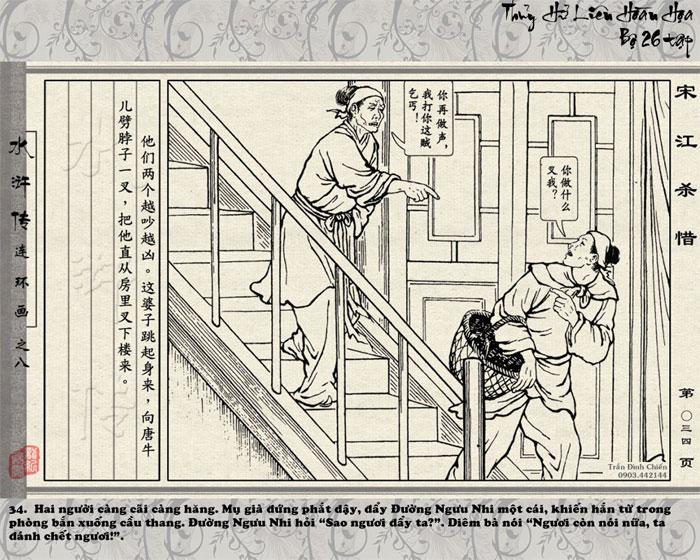 Thủy Hử Liên Hoàn Họa
Bộ 26 tập
宋江杀惜
第〇三四页
你再做声，
我打你这贼
乞丐！
你做什么
叉我？
他们两个越吵越凶。这婆子跳起身来，向唐牛
儿劈脖子一叉，把他直从房里叉下楼来。
水浒传连环画之八
水浒传
Trần Đình Chiến
0903.442144
34. Hai người càng cãi càng hăng. Mụ già đứng phắt dậy, đẩy Đường Ngưu Nhi một cái, khiến hắn từ trong
phòng bắn xuống cầu thang. Đường Ngưu Nhi hỏi “Sao ngươi đẩy ta?”. Diêm bà nói “Ngươi còn nói nữa, ta
đánh chết ngươi!”.